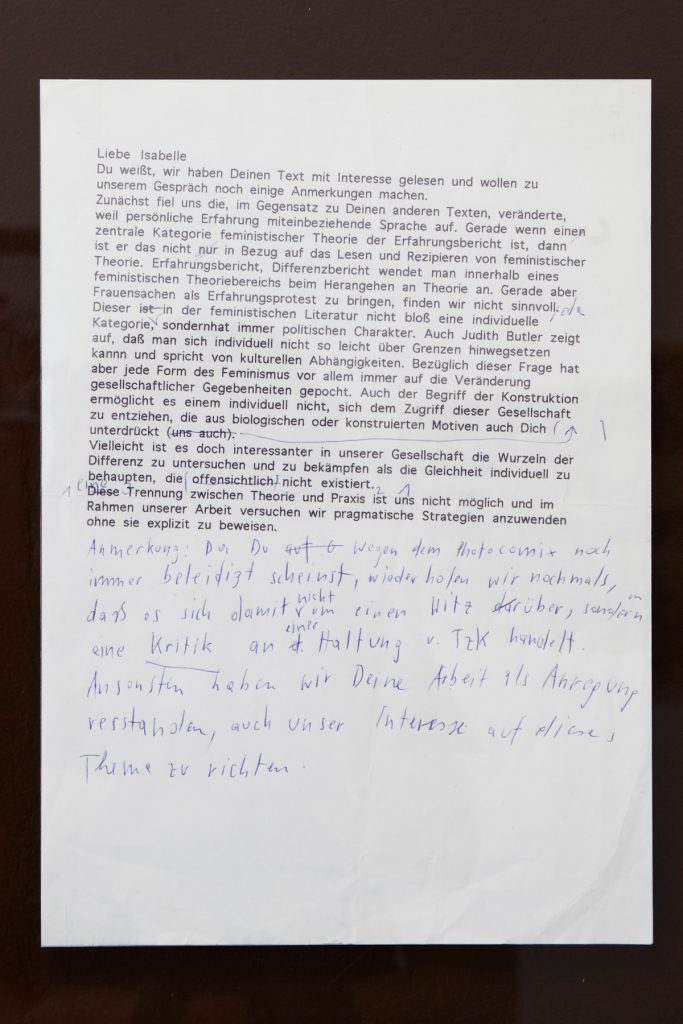 Liebe Isabelle
Du weißt, wir haben Deinen Text mit Interesse gelesen und wollen zu
unserem Gespräch noch einige Anmerkungen machen.
Zunächst fiel uns die, im Gegensatz zu Deinen anderen Texten, veränderte,
weil persönliche Erfahrung miteinbeziehende Sprache auf. Gerade wenn einen
zentrale Kategorie feministischer Theorie der Erfahrungsbericht ist, dann
ist er das nicht nur in Bezug auf das Lesen und Rezipieren von feministischer
Theorie. Erfahrungsbericht, Differenzbericht wendet man innerhalb eines
feministischen Theoriebereichs beim Herangehen an Theorie an. Gerade aber
Frauensachen als Erfahrungsprotest zu bringen, finden wir nicht sinnvoll. da
Dieser ist in der feministischen Literatur nicht bloß eine individuelle
Kategorie, sondernhat immer politischen Charakter. Auch Judith Butler zeigt
auf, daß man sich individuell nicht so leicht über Grenzen hinwegsetzen
kannn und spricht von kulturellen Abhängigkeiten. Bezüglich dieser Frage hat
aber jede Form des Feminismus vor allem immer auf die Veränderung
gesellschaftlicher Gegebenheiten gepocht. Auch der Begriff der Konstruktion
ermöglicht es einem individuell nicht, sich dem Zugriff dieser Gesellschaft
zu entziehen, die aus biologischen oder konstruierten Motiven auch Dich
unterdrückt (uns auch).
Vielleicht ist es doch interessanter in unserer Gesellschaft die Wurzeln der
Differenz zu untersuchen und zu bekämpfen als die Gleichheit individuell zu
behaupten, die (offensichtlich) nicht existiert.
eine
Diese Trennung zwischen Theorie und Praxis ist uns nicht möglich und im
Rahmen unserer Arbeit versuchen wir pragmatische Strategien anzuwenden
ohne sie explizit zu beweisen.
Anmerkung: Da Du auf G wegen dem Photocomix noch
immer beleidigt scheinst, wiederholen wir nochmals,
daß es sich damit nicht um einen Witz darüber, sondern um
eine Kritik an einer Haltung v. TzK handelt.
Ansonsten haben wir Deine Arbeit als Anregung
verstanden, auch unser Interesse auf dieses
Thema zu richten.